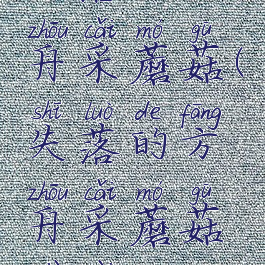 zhōu cǎi mó gū
舟采蘑菇(
shī luò de fāng
失落的方
zhōu cǎi mó gū
舟采蘑菇